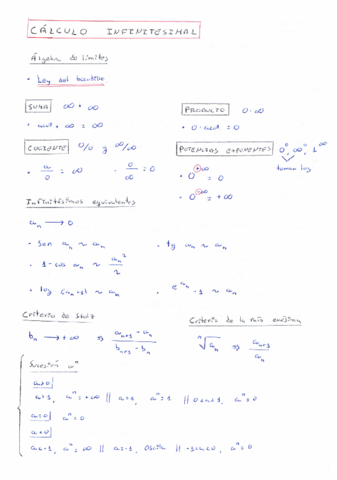 CÁLCULO INFINITESIMAL
Álgebra de límites
• Ley del
SUMA ∞ + ∞
• acot + ∞ = ∞
PRODUCTO 0·∞
• 0·acot = 0
COCIENTE 0/0 y ∞/∞
• a/0 = ∞ 0/∞ = 0
POTENCIAS EXPONENTES 0⁰, ∞⁰, 1^∞
toman log
• 0^{+∞} = 0
• 0^{-∞} = +∞
Infinitésimos equivalentes
aₙ → 0
• sen aₙ ~ aₙ • tg aₙ ~ aₙ
• 1 - cos aₙ ~ aₙ²/2
• log (aₙ+1) ~ aₙ • e^{aₙ} - 1 ~ aₙ
Criterio de Stolz
bₙ → +∞ ⇒ (aₙ₊₁ - aₙ)/(bₙ₊₁ - bₙ)
Criterio de la raíz enésima
ⁿ√aₙ ⇒ aₙ₊₁/aₙ
Sucesión aⁿ
a>0
a>1, aⁿ = +∞ // a=1, aⁿ = 1 // 0<a<1, aⁿ = 0
a=0 aⁿ = 0
a<0
a<-1, aⁿ = ∞ // a=-1, oscila // -1<a<0, aⁿ = 0